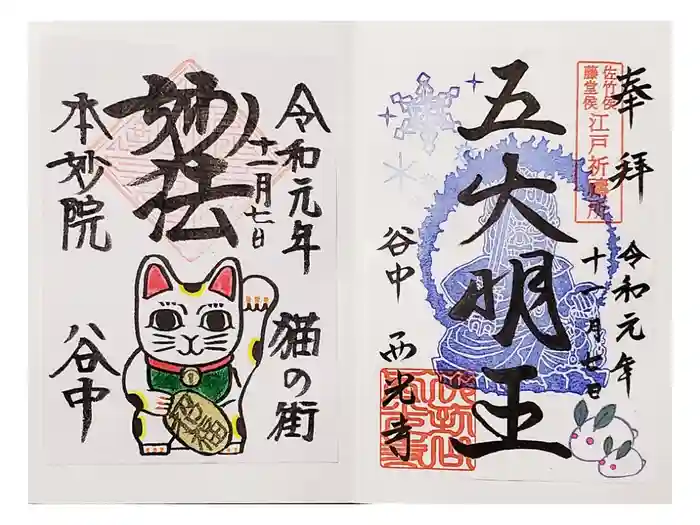 奉拝
令和元年
十一月七日
佐竹侯
藤堂侯
江戸祈祷所
五大明王
谷中 西光寺
令和元年
十一月七日
妙法
本妙院
猫の街
谷中
招福